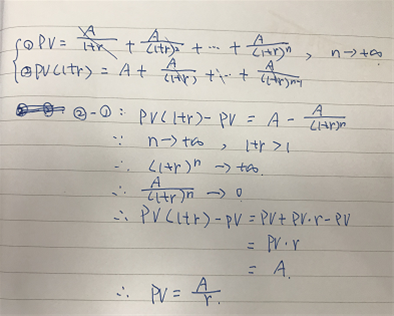 ① PV = A/(1+r) + A/(1+r)² + ⋯ + A/(1+r)ⁿ , n→+∞
② PV(1+r) = A + A/(1+r) + ⋯ + A/(1+r)ⁿ⁻¹
②-① : PV(1+r) - PV = A - A/(1+r)ⁿ
∵ n→+∞ , 1+r>1
∴ (1+r)ⁿ →+∞
∴ A/(1+r)ⁿ → 0
∴ PV(1+r) - PV = PV + PV·r - PV
= PV·r
= A.
∴ PV = A/r.